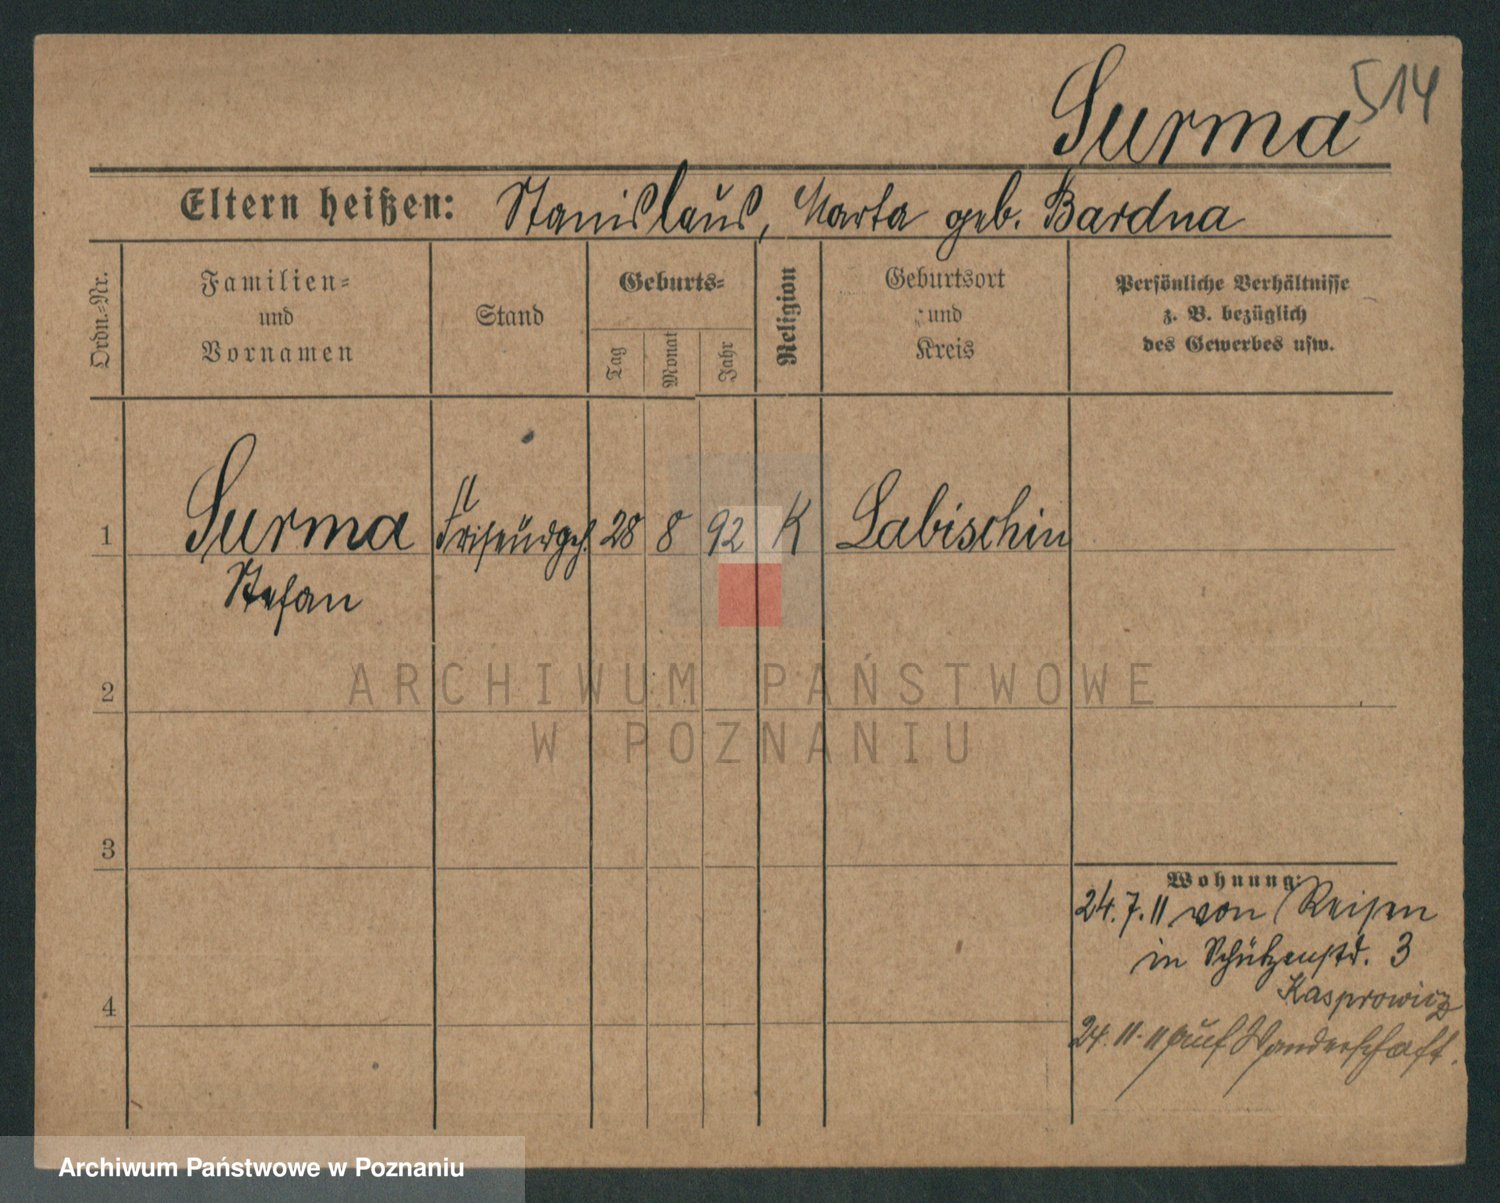 Surma 514
Eltern heißen: Stanislaus, Marta geb. Bardna
Ordn.-Nr.
Familien-
und
Vornamen
Stand
Geburts-
Tag
Monat
Jahr
Religion
Geburtsort
und
Kreis
Persönliche Verhältnisse
z. B. bezüglich
des Gewerbes usw.
1 Surma Friseurgeh. 28 8 92 K Labischin
Stefan
ARCHIWUM PAŃSTWOWE
W POZNANIU
2
3
4
Wohnung:
24.7.11 von Reisen
in Schützenstr. 3
Kasprowicz
24.11.11 auf Wanderschaft.
Archiwum Państwowe w Poznaniu